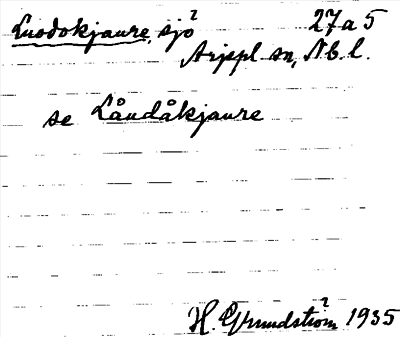 Luodokjaure, sjö 27a5
Arjepl sn, Nb. l.
se Låudåkjaure
H. Grundström 1935